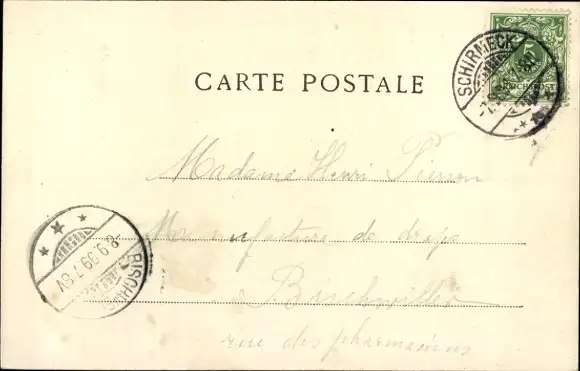 SCHIRMECK
5
REICHSPOST
CARTE POSTALE
Madame Henri Pierron
Manufacture de draps
Bischwiller
rue des pharmaciens
8.9.99.7-8V
BISCHW